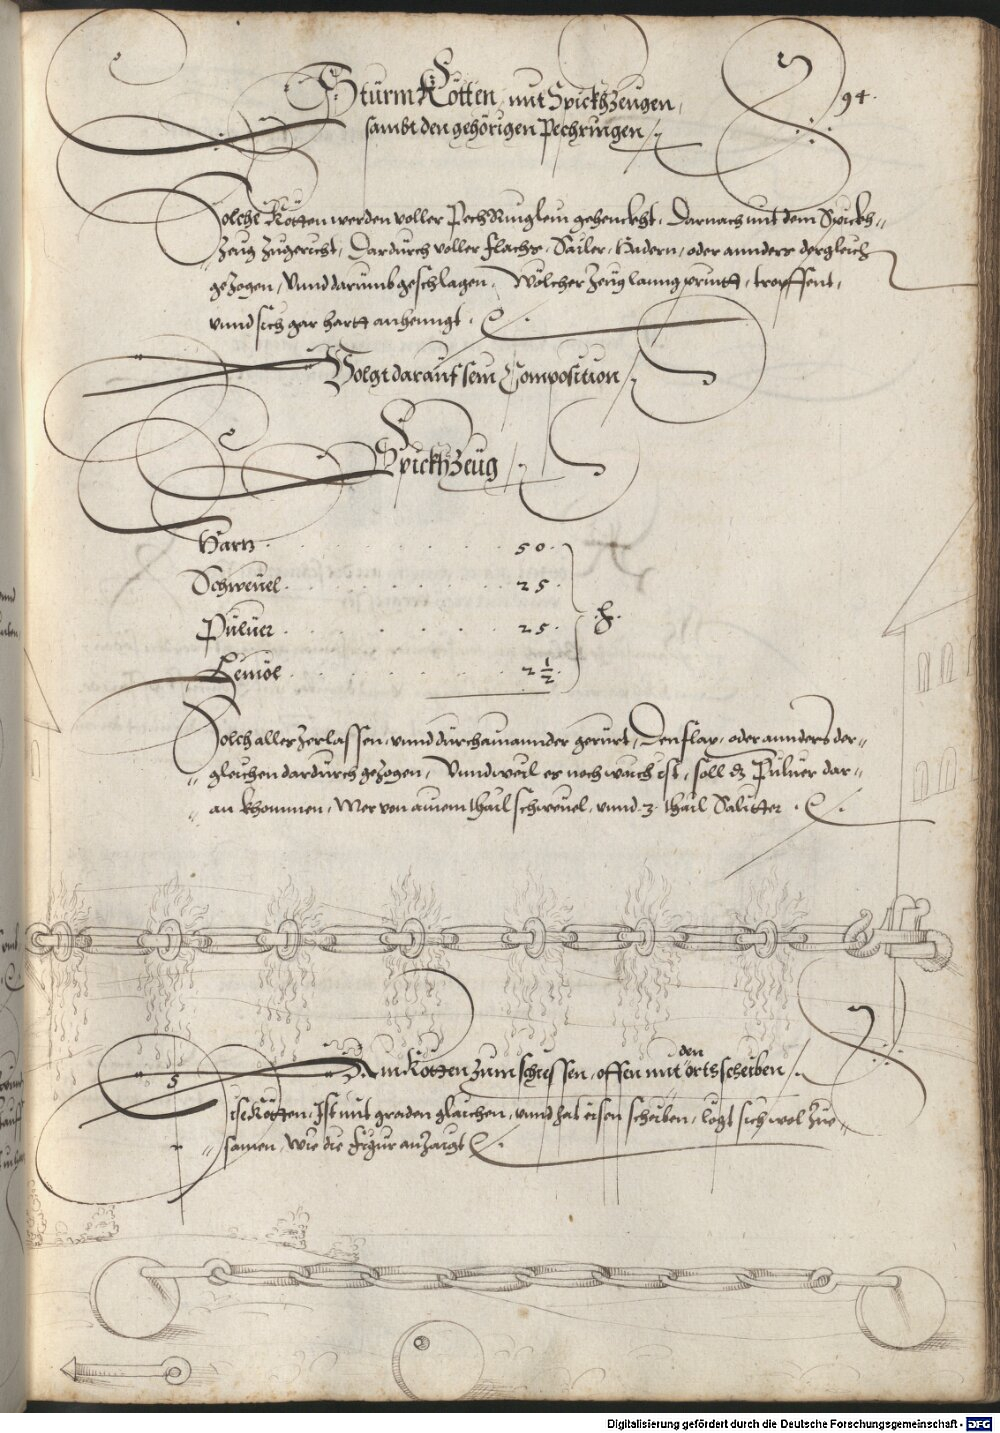 94.
Sturm Kötten, mit Spickhzeugen,
sambt den gehörigen Pechringen /.
Solche Kötten werden voller PechRinglein gehenckht, Darnach mit dem Spickh„
„ Zeug Zugericht, Dardurch voller flachs, Sailer, hadern, oder annders dergleich
gezogen, Vnnd darumb geschlagen, Wölcher Zeug lanng printt, tropffent,
vnnd sich gar hartt anhenngt.
Volgt darauf sein Composition /.
Spickhzeug /.
Hartz . . . . . . 50.
Schweuel . . . . . . 25.
Puluer . . . . . . 25. lb.
Leinöl . . . . . . 2 1/2.
Solch alles Zerlassen, vnnd durchainannder gerürt, Den flax, oder annders der„
„ gleichen dardurch gezogen, Vnnd weil es noch waich ist, soll dz Puluer dar„
„ an khommen, Mer von ainem thail schweuel, vnnd .3. thail Salitter.
Ain Kötten zum schiessen, offen mit den ortsscheiben /.
Dise Kötten, Ist mit graden glaichen, vnnd hat eisen scheiben, lögt sich wol Zue„
„ samen, Wie die Figur anzaigt
Digitalisierung gefördert durch die Deutsche Forschungsgemeinschaft - DFG